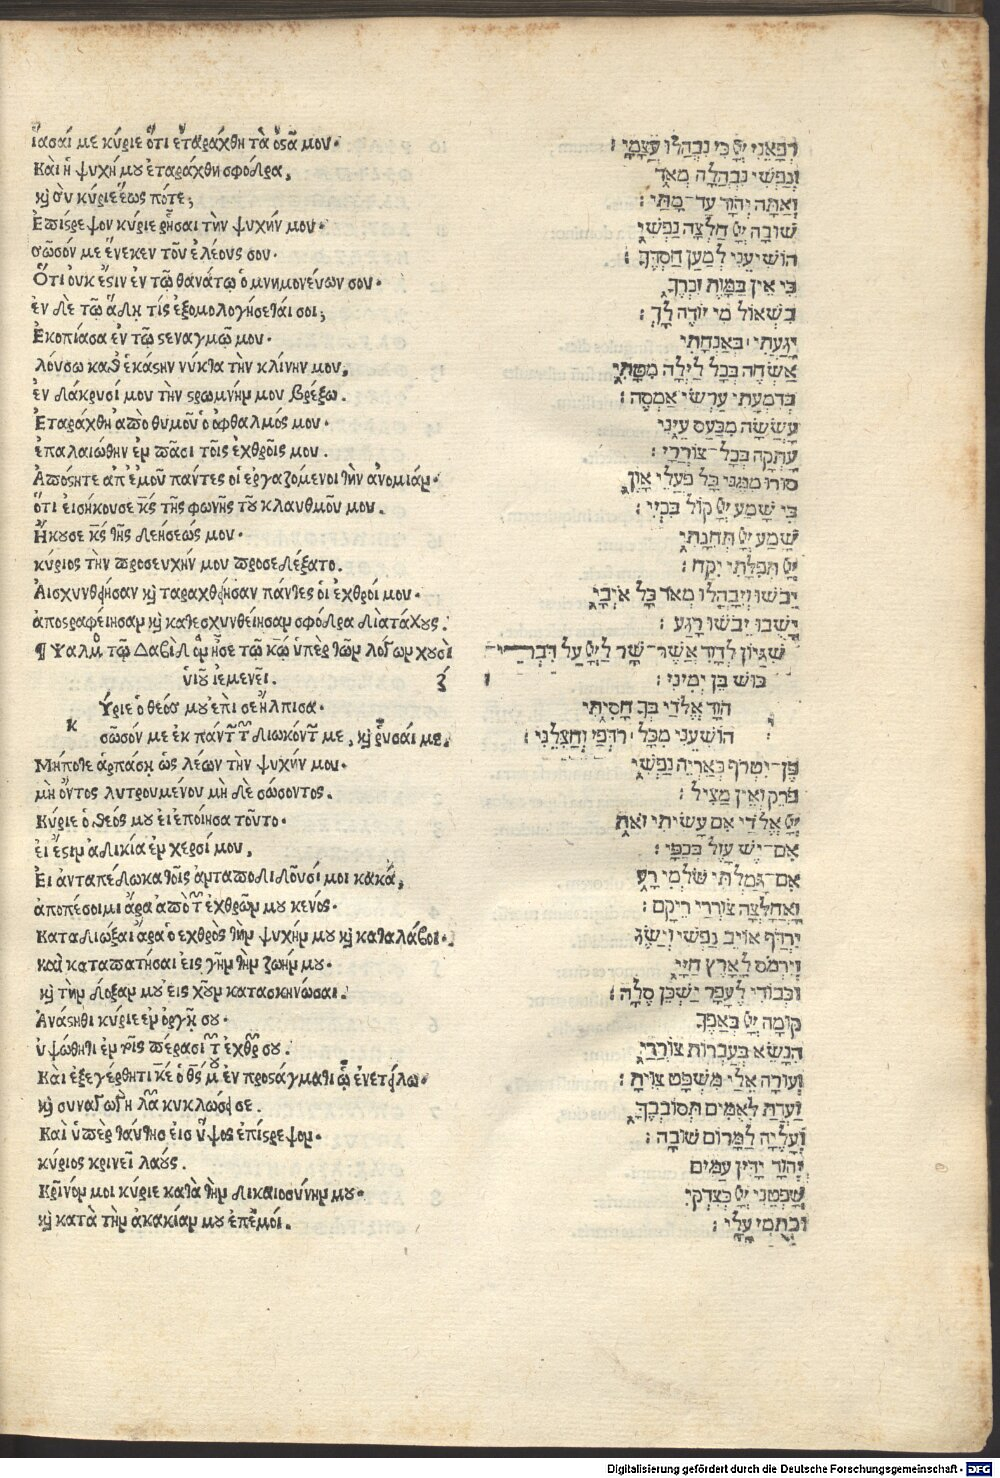 ἴασαί με κύριε ὅτι ἐταράχθη τὰ ὀϛᾶ μου·
Καὶ ἡ ψυχή μου ἐταράχθη σφόδρα,
καὶ σὺ κύριε ἕως πότε;
Ἐπίϛρεψον κύριε ῥῆσαι τὴν ψυχήν μου·
σῶσόν με ἕνεκεν τοῦ ἐλέους σου·
Ὅτι ουκ ἔϛιν ἐν τῷ θανάτῳ ὁ μνημονεύων σου·
ἐν δὲ τῷ ἅδῃ τίς ἐξομολογήσεταί σοι;
Ἐκοπίασα ἐν τῷ ϛεναγμῷ μου·
λούσω καθ ἑκάϛην νύκτα τὴν κλίνην μου,
ἐν δάκρυσί μου τὴν ϛρωμνήν μου βρέξω.
Ἐταράχθη ἀπὸ θυμοῦ ὁ οφθαλμός μου·
ἐπαλαιώθην ἐν πᾶσι τοῖς ἐχθροῖς μου.
Ἀπόϛητε ἀπ ἐμοῦ πάντες οἱ εργαζόμενοι τὴν ἀνομίαν·
ὅτι εισήκουσε κς τῆς φωνῆς τοῦ κλαυθμοῦ μου.
Ἤκουσε κς τῆς δεήσεώς μου·
κύριος τὴν προσευχήν μου προσεδέξατο.
Αισχυνθήησαν καὶ ταραχθήησαν πάντες οἱ ἐχθροί μου·
ἀποϛραφείησαν καὶ κατεσχυνθείησαν σφόδρα διατάχους.
¶ Ψαλμ τῷ Δαβὶδ ὃν ᾖσε τῷ κω ὑπὲρ τῶν λόγων χουσὶ
ὑιοῦ ιεμενεῖ. ζ
κ Ύριε ὁ θεόσ μου ἐπὶ σε ἤλπισα·
σῶσόν με ἐκ πάντ τ διωκόντ με, καὶ ῥῦσαί με.
Μήποτε ἁρπάσῃ ὡς λέων τὴν ψυχήν μου·
μὴ ὄντος λυτρουμένου μὴ δὲ σώσοντος.
Κύριε ὁ θεός μου ει ἐποίησα τοῦτο·
ἐι ἔϛιν ἀδικία ἐν χερσί μου,
Ει ἀνταπέδωκα τοῖς ἀνταποδιδοῦσί μοι κακά,
ἀποπέσοιμι ἄρα ἀπὸ τ ἐχθρῶν μου κενός·
Καταδιώξαι ἄρα ὁ εχθρὸς τὴν ψυχήν μου καὶ καταλάβοι·
καὶ καταπατήσαι εἰς γῆν τὴν ζωήν μου·
καὶ τὴν δόξαν μου εις χοῦν κατασκηνώσαι.
Ἀνάϛηθι κύριε ἐν ὀργῇ σου·
ὑψώθητι ἐν τοῖς πέρασι τ ἐχθρ σου.
Καὶ ἐξεγέρθητι κε ὁ θς μου ἐν προϛάγματι ᾧ ἐνετείλω·
καὶ συναγωγὴ λα κυκλώσει σε.
Καὶ ὑπὲρ ταύτησ εισ ὕψος ἐπίϛρεψον·
κύριος κρινεῖ λαούς.
Κρῖνόν μοι κύριε κατὰ τὴν δικαιοσύνην μου·
καὶ κατὰ τὴν ἀκακίαν μου ἐπ ἐμοί.
רְפָאֵנִי יְיָ כִּי נִבְהֲלוּ עֲצָמָי :
וְנַפְשִׁי נִבְהֲלָה מְאֹד
וְאַתָּה יְהֹוָה עַד־מָתַי :
שׁוּבָה יְיָ חַלְּצָה נַפְשִׁי
הוֹשִׁיעֵנִי לְמַעַן חַסְדֶּךָ :
כִּי אֵין בַּמָּוֶת זִכְרֶךָ
בִּשְׁאוֹל מִי יוֹדֶה לָּךְ :
יָגַעְתִּי בְּאַנְחָתִי
אַשְׂחֶה בְּכָל לַיְלָה מִטָּתִי
בְּדִמְעָתִי עַרְשִׂי אַמְסֶה :
עָשְׁשָׁה מִכַּעַס עֵינִי
עָתְקָה בְּכָל־צוֹרְרָי :
סוּרוּ מִמֶּנִּי כָּל פֹּעֲלֵי אָוֶן
כִּי שָׁמַע יְיָ קוֹל בִּכְיִי :
שָׁמַע יְיָ תְּחִנָּתִי
יְיָ תְּפִלָּתִי יִקָּח :
יֵבֹשׁוּ וְיִבָּהֲלוּ מְאֹד כָּל אֹיְבָי
יָשֻׁבוּ יֵבֹשׁוּ רָגַע :
שִׁגָּיוֹן לְדָוִד אֲשֶׁר־שָׁר לַיְיָ עַל דִּבְרֵי־
כוּשׁ בֶּן יְמִינִי :
הוָֹה אֱלֹדַי בְּךָ חָסִיתִי
הוֹשִׁעֵנִי מִכָּל רֹדְפַי וְהַצִּילֵנִי :
פֶּן־יִטְרֹף כְּאַרְיֵה נַפְשִׁי
פֹּרֵק וְאֵין מַצִּיל :
יְיָ אֱלֹדַי אִם עָשִׂיתִי זֹאת
אִם־יֶשׁ עָוֶל בְּכַפָּי :
אִם־גָּמַלְתִּי שֹׁלְמִי רָע
וָאֲחַלְּצָה צוֹרְרִי רֵיקָם :
יִרַדֹּף אוֹיֵב נַפְשִׁי וְיַשֵּׂג
וְיִרְמֹס לָאָרֶץ חַיָּי
וּכְבוֹדִי לֶעָפָר יַשְׁכֵּן סֶלָה :
קוּמָה יְיָ בְּאַפֶּךָ
הִנָּשֵׂא בְּעַבְרוֹת צוֹרְרָי
וְעוּרָה אֵלַי מִשְׁפָּט צִוִּיתָ :
וַעֲדַת לְאֻמִּים תְּסוֹבְבֶךָּ
וְעָלֶיהָ לַמָּרוֹם שׁוּבָה :
יְהֹוָה יָדִין עַמִּים
שָׁפְטֵנִי יְיָ כְּצִדְקִי
וּכְתֻמִּי עָלָי :
Digitalisierung gefördert durch die Deutsche Forschungsgemeinschaft - DFG